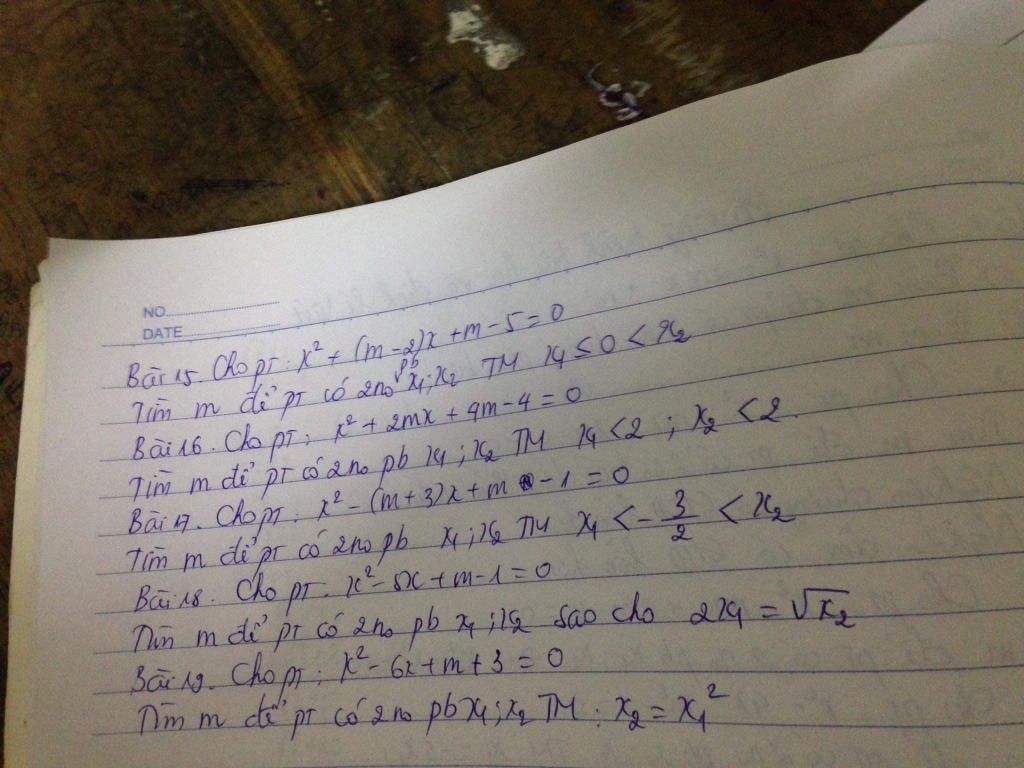 NO
DATE
Bài 15. Cho pT: x² + (m-2)x + m - 5 = 0
Tìm m để pT có 2no pb x₁; x₂ TM x₁ ≤ 0 < x₂
Bài 16. Cho pT: x² + 2mx + 4m - 4 = 0
Tìm m để pT có 2no pb x₁; x₂ TM x₁ < 2 ; x₂ < 2.
Bài 17. Cho pT: x² - (m+3)x + m - 1 = 0
Tìm m để pT có 2no pb x₁; x₂ TM x₁ < -3/2 < x₂
Bài 18. Cho pT: x² - 5x + m - 1 = 0
Tìm m để pT có 2no pb x₁; x₂ sao cho 2x₁ = √x₂
Bài 19. Cho pT: x² - 6x + m + 3 = 0
Tìm m để pT có 2no pb x₁; x₂ TM: x₂ = x₁²